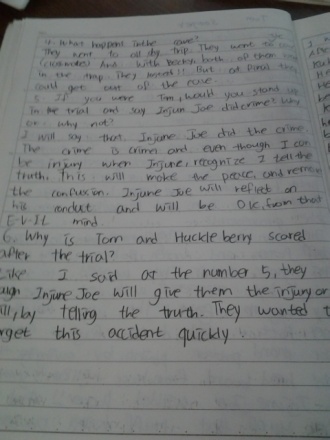 4. What happend in the cave?
They went to all day trip. They went to
(classmates) And with backy both of them
in the trap. They missed!! But at final they
could get out of the cave.
5. If you were Tom, would you stand up
in the trial and say Injun Joe did crime? Why
or why not?
I will say that. Injune Joe did the crime.
The crime is crime and even though I can
be injury when Injune, recognize I tell the
truth. This will make the peace, and remove
the confusion. Injune Joe will reflect on
his conduct and will be OK, from that
E-V-I-L mind.
6. Why is Tom and Huckleberry scored
after the trial?
Like I said at the number 5, they
Injune Joe will give them the injury or
by telling the truth. They wanted
this accident quickly.